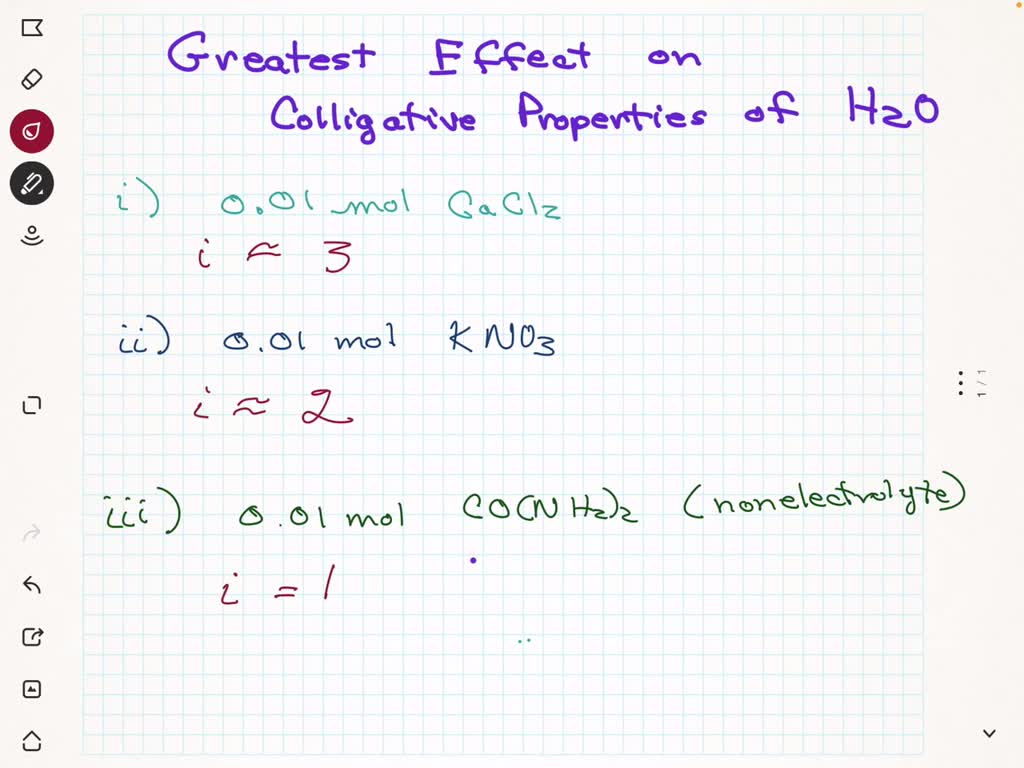 Greatest Effect on
Colligative Properties of H2O
i) 0.01 mol CaCl2
i ≈ 3
ii) 0.01 mol KNO3
i ≈ 2
iii) 0.01 mol CO(NH2)2 (nonelectrolyte)
i = 1
1 / 1